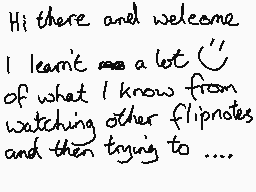 Hi there and welcome
I learn't a lot
of what I know from
watching other flipnotes
and then trying to ....